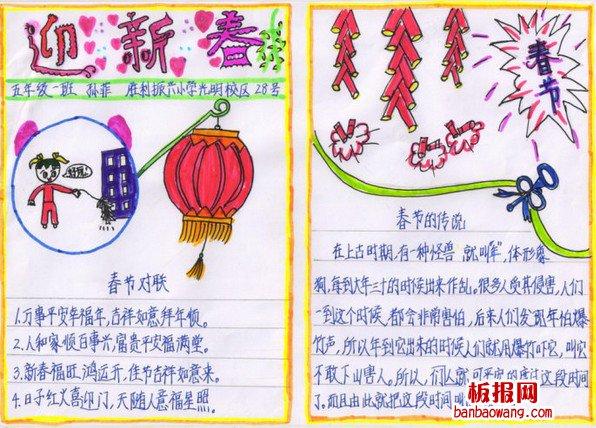 迎新春
五年级一班 孙菲 胜利振兴小学光明校区 28号
春节对联
1.万事平安幸福年,吉祥如意拜年顺。
2.人和家顺百事兴,富贵平安福满堂。
3.新春福旺,鸿运开,佳节吉祥如意来。
4.日子红火喜迎门,天随人意福星照。
春节
春节的传说
在上古时期,有一种怪兽 就叫"年",体形
狗,每到大年三十的时候出来作乱。很多人受其侵害,人们
一到这个时候,都会非常害怕,后来人们发现年怕爆
竹声,所以年到它出来的时候人们就用爆竹吓它,叫它
不敢下山害人。所以,们人就 可平安的度过这段时间
了。而且由此就把这段时间叫
板报网
banbaowang.com